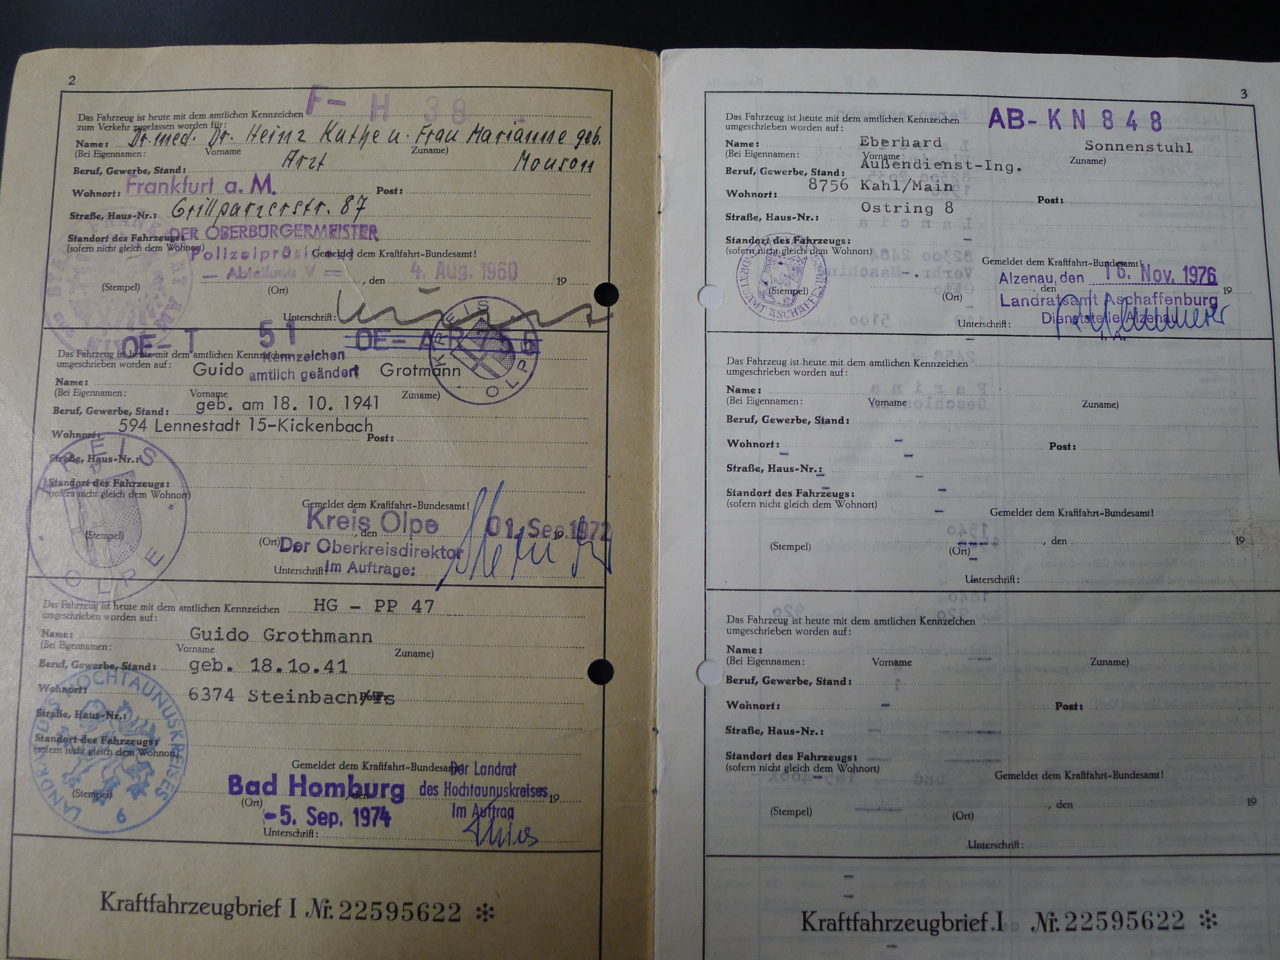 2
Das Fahrzeug ist heute mit dem amtlichen Kennzeichen F- H 38
zum Verkehr zugelassen worden für:
Name: Dr. med. Dr. Heinz Kuthe u. Frau Marianne geb.
(Bei Eigennamen: Vorname Zuname)
Arzt Mouson
Beruf, Gewerbe, Stand:
Wohnort: Frankfurt a. M. Post:
Straße, Haus-Nr.: Grillparzerstr. 87
Standort des Fahrzeugs: DER OBERBÜRGERMEISTER
(sofern nicht gleich dem Wohnort) Polizeipräsident Gemeldet dem Kraftfahrt-Bundesamt!
— Abteilung V — , den 4. Aug. 1960 19
(Stempel) (Ort)
Unterschrift:
KREIS OLPE
OE- T 51 OE- AR 756
Das Fahrzeug ist heute mit dem amtlichen Kennzeichen
umgeschrieben worden auf: Kennzeichen
amtlich geändert
Guido Grotmann
Name:
(Bei Eigennamen: Vorname Zuname)
geb. am 18. 10. 1941
Beruf, Gewerbe, Stand:
594 Lennestadt 15-Kickenbach
Wohnort: Post:
Straße, Haus-Nr.:
Standort des Fahrzeugs:
(sofern nicht gleich dem Wohnort)
KREIS OLPE
Gemeldet dem Kraftfahrt-Bundesamt!
(Stempel) Kreis Olpe , den 01. Sep. 1972 19
(Ort) Der Oberkreisdirektor
Unterschrift: Im Auftrage:
Das Fahrzeug ist heute mit dem amtlichen Kennzeichen HG - PP 47
umgeschrieben worden auf:
Name: Guido Grothmann
(Bei Eigennamen: Vorname Zuname)
Beruf, Gewerbe, Stand: geb. 18.1o.41
Wohnort: 6374 Steinbach/Ts Post:
Straße, Haus-Nr.:
Standort des Fahrzeugs:
(sofern nicht gleich dem Wohnort)
LANDRAT DES HOCHTAUNUSKREISES 6
Gemeldet dem Kraftfahrt-Bundesamt!
Der Landrat
(Stempel) Bad Homburg , den des Hochtaunuskreises 19
(Ort) -5. Sep. 1974 Im Auftrag
Unterschrift:
Kraftfahrzeugbrief I Nr. 22595622 *
3
Das Fahrzeug ist heute mit dem amtlichen Kennzeichen AB- K N 8 4 8
umgeschrieben worden auf:
Name: Eberhard Sonnenstuhl
(Bei Eigennamen: Vorname Zuname)
Beruf, Gewerbe, Stand: Außendienst-Ing.
Wohnort: 8756 Kahl/Main Post:
Straße, Haus-Nr.: Ostring 8
Standort des Fahrzeugs: -
(sofern nicht gleich dem Wohnort)
Gemeldet dem Kraftfahrt-Bundesamt!
(Stempel) -.- Alzenau, den 16. Nov. 1976 19
(Ort) , den
Landratsamt Aschaffenburg
Unterschrift: Dienststelle Alzenau
I. A.
LANDRATSAMT ASCHAFFENBURG
Das Fahrzeug ist heute mit dem amtlichen Kennzeichen
umgeschrieben worden auf:
Name:
(Bei Eigennamen: Vorname Zuname)
Beruf, Gewerbe, Stand:
Wohnort: Post:
Straße, Haus-Nr.:
Standort des Fahrzeugs:
(sofern nicht gleich dem Wohnort)
Gemeldet dem Kraftfahrt-Bundesamt!
(Stempel) (Ort) , den 19
Unterschrift:
Das Fahrzeug ist heute mit dem amtlichen Kennzeichen
umgeschrieben worden auf:
Name:
(Bei Eigennamen: Vorname Zuname)
Beruf, Gewerbe, Stand:
Wohnort: Post:
Straße, Haus-Nr.:
Standort des Fahrzeugs:
(sofern nicht gleich dem Wohnort)
Gemeldet dem Kraftfahrt-Bundesamt!
(Stempel) (Ort) , den 19
Unterschrift:
Kraftfahrzeugbrief I Nr. 22595622 *